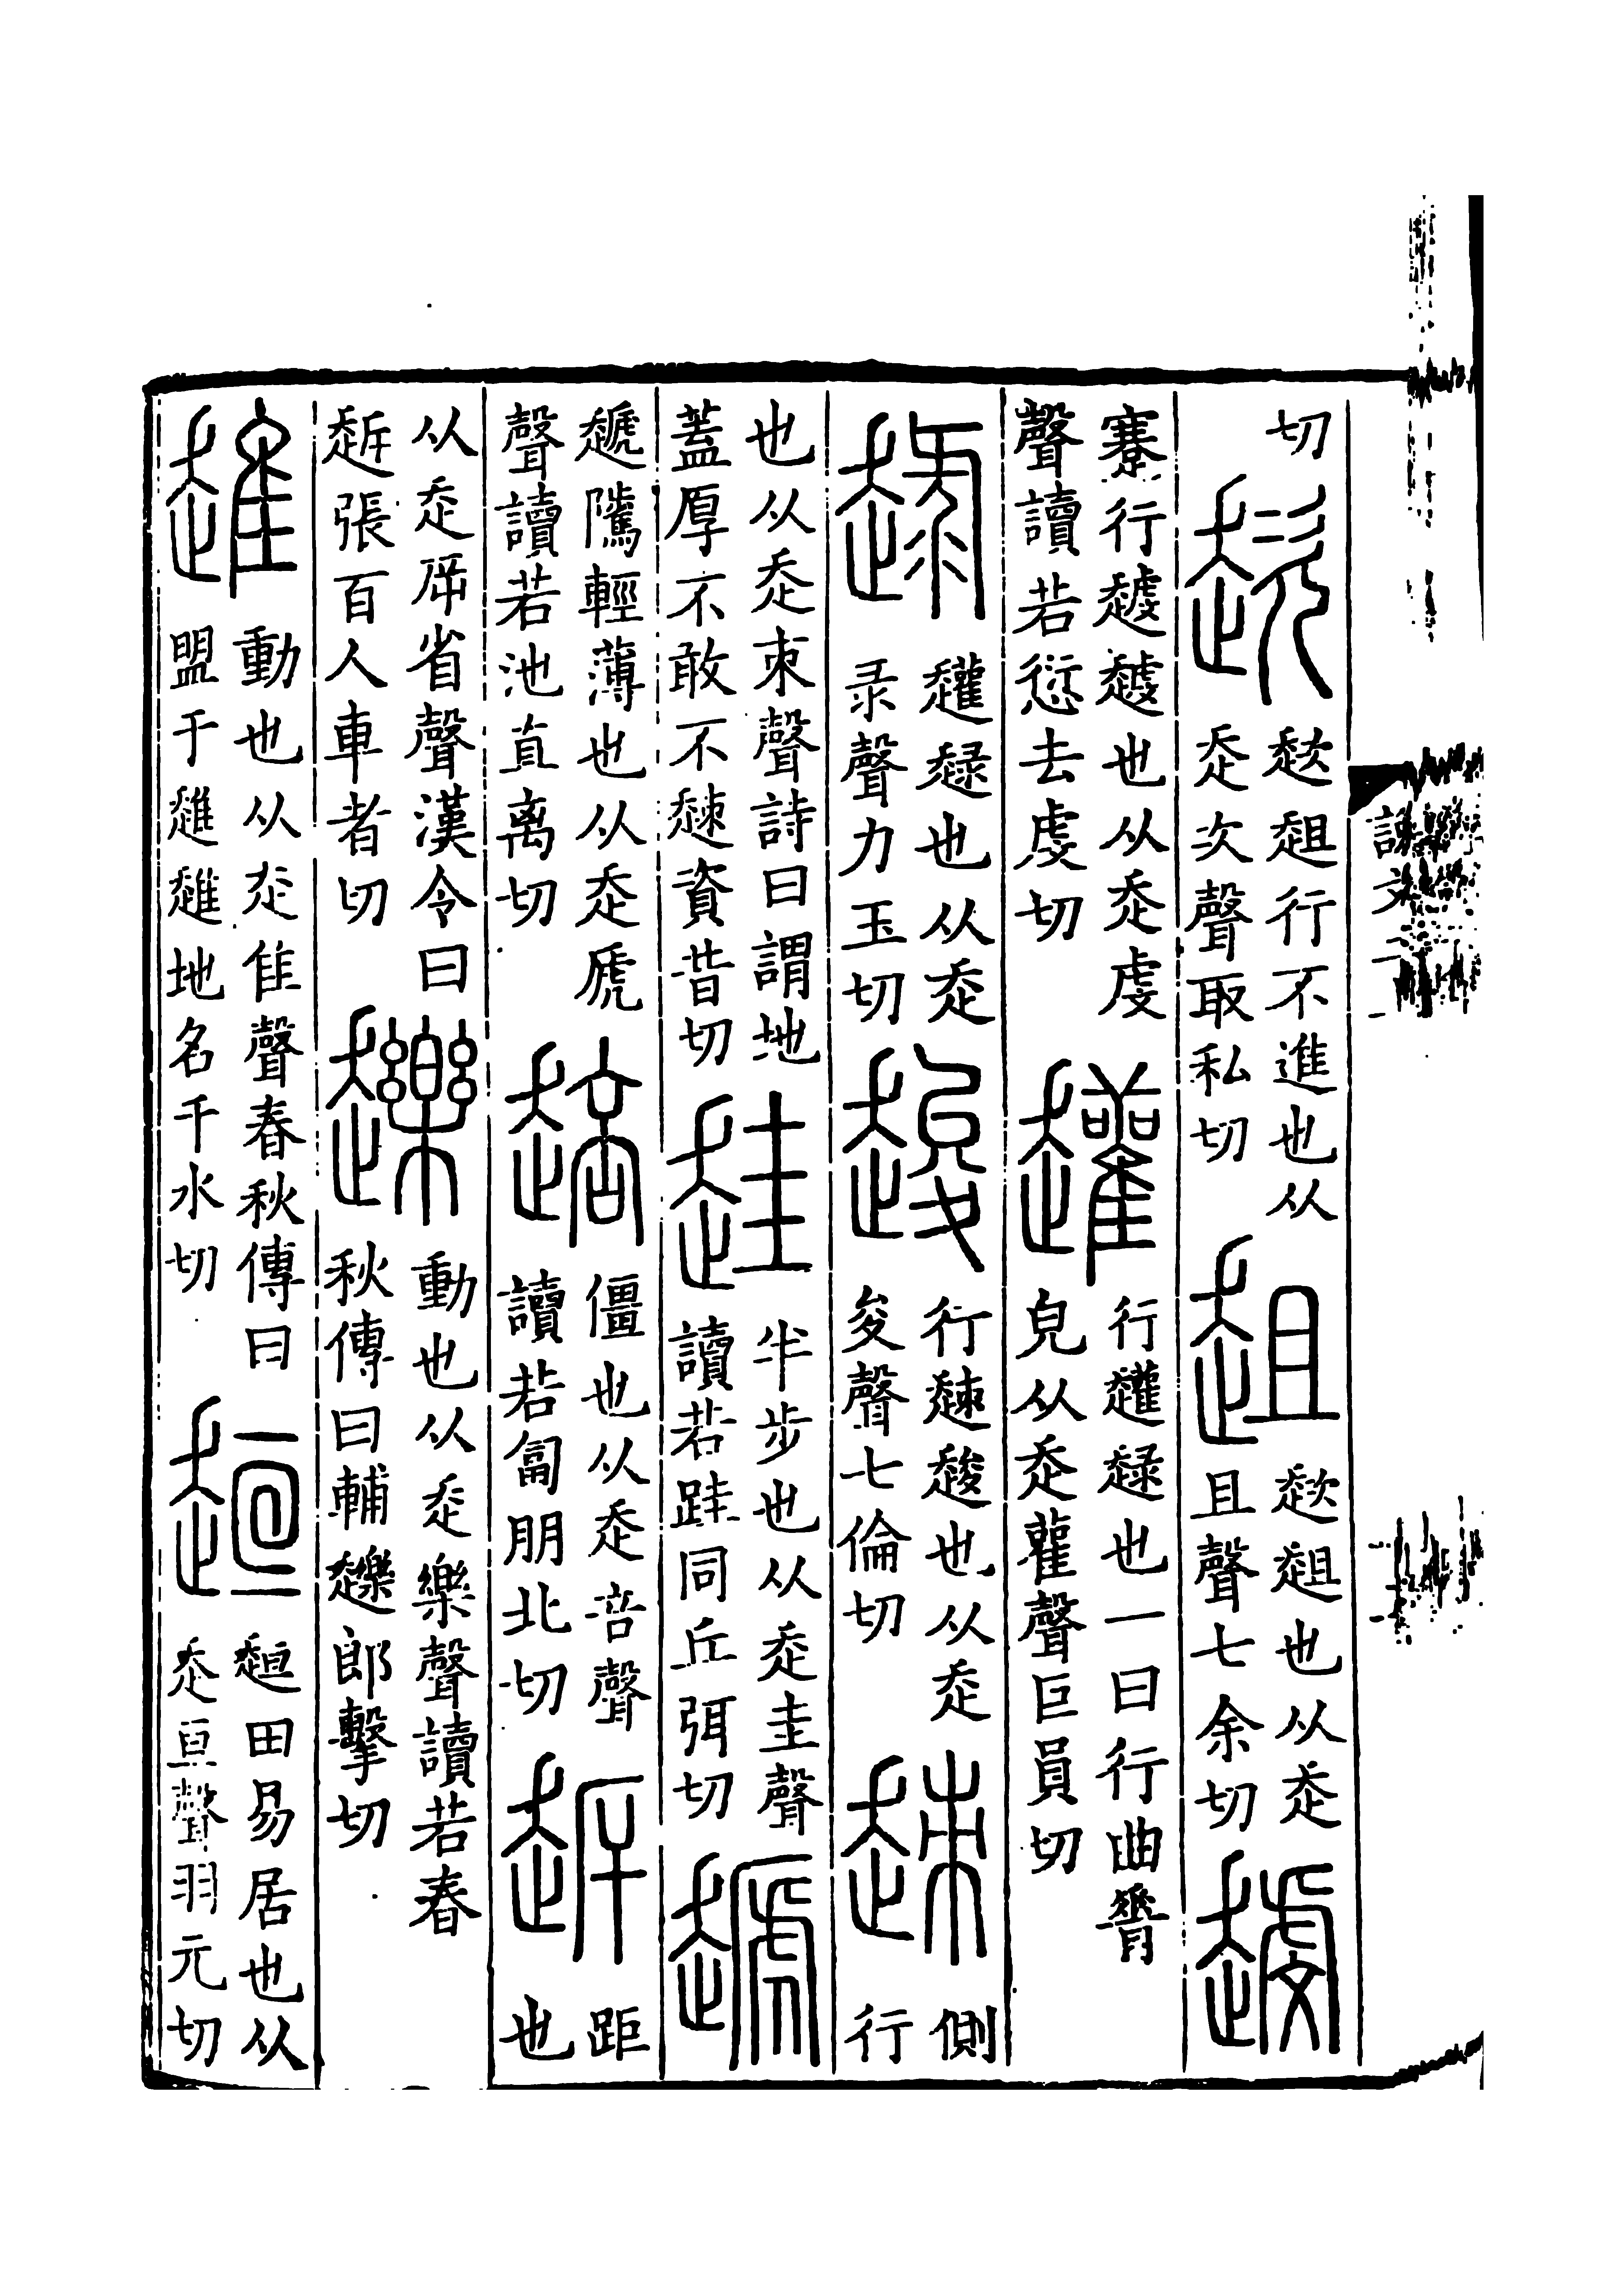 切 趑 趑趄行不進也从走次聲取私切 趄 趑趄也从走且聲七余切 𧽐
蹇行𧽐𧽐也从走虔聲讀若愆去虔切 𧾯 行𧾯趢也一曰行曲脊皃从走雚聲巨員切
趢 𧾯趢也从走录聲力玉切 䞭 行趚䞭也从走夋聲七倫切 趚 側行
也从走朿聲詩曰謂地蓋厚不敢不趚資昔切 䞨 半步也从走圭聲讀若跬同丘弭切 䞾
䞾隲輕薄也从走虒聲讀若池直离切 䞳 僵也从走咅聲讀若匐朋北切 䞣 距也
从走㡿省聲漢令曰䞣張百人車者切 䟏 動也从走樂聲讀若春秋傳曰輔䟏郎擊切
趡 動也从走隹聲春秋傳曰盟于趡趡地名千水切 𧻚 𧻚田易居也从走亘聲羽元切